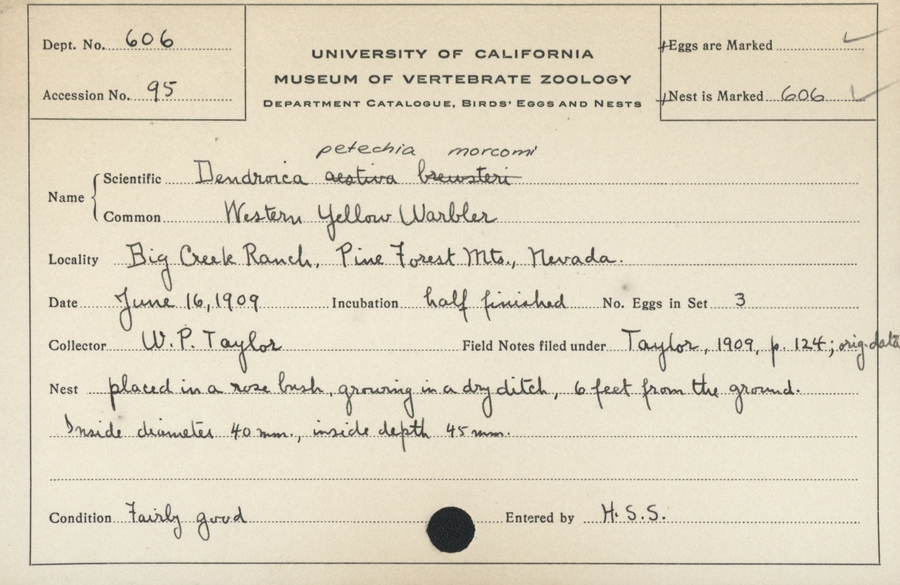 Dept. No. 606
Accession No. 95
UNIVERSITY OF CALIFORNIA
MUSEUM OF VERTEBRATE ZOOLOGY
DEPARTMENT CATALOGUE, BIRDS' EGGS AND NESTS
Eggs are Marked ✓
Nest is Marked 606 ✓
petechia morcomi
Name
Scientific Dendroica aestiva brewsteri
Common Western Yellow Warbler
Locality Big Creek Ranch, Pine Forest Mts., Nevada.
Date June 16, 1909 Incubation half finished No. Eggs in Set 3
Collector W. P. Taylor Field Notes filed under Taylor, 1909, p. 124; orig. data
Nest placed in a rose bush, growing in a dry ditch, 6 feet from the ground.
Inside diameter 40 mm., inside depth 45 mm.
Condition Fairly good Entered by H. S. S.